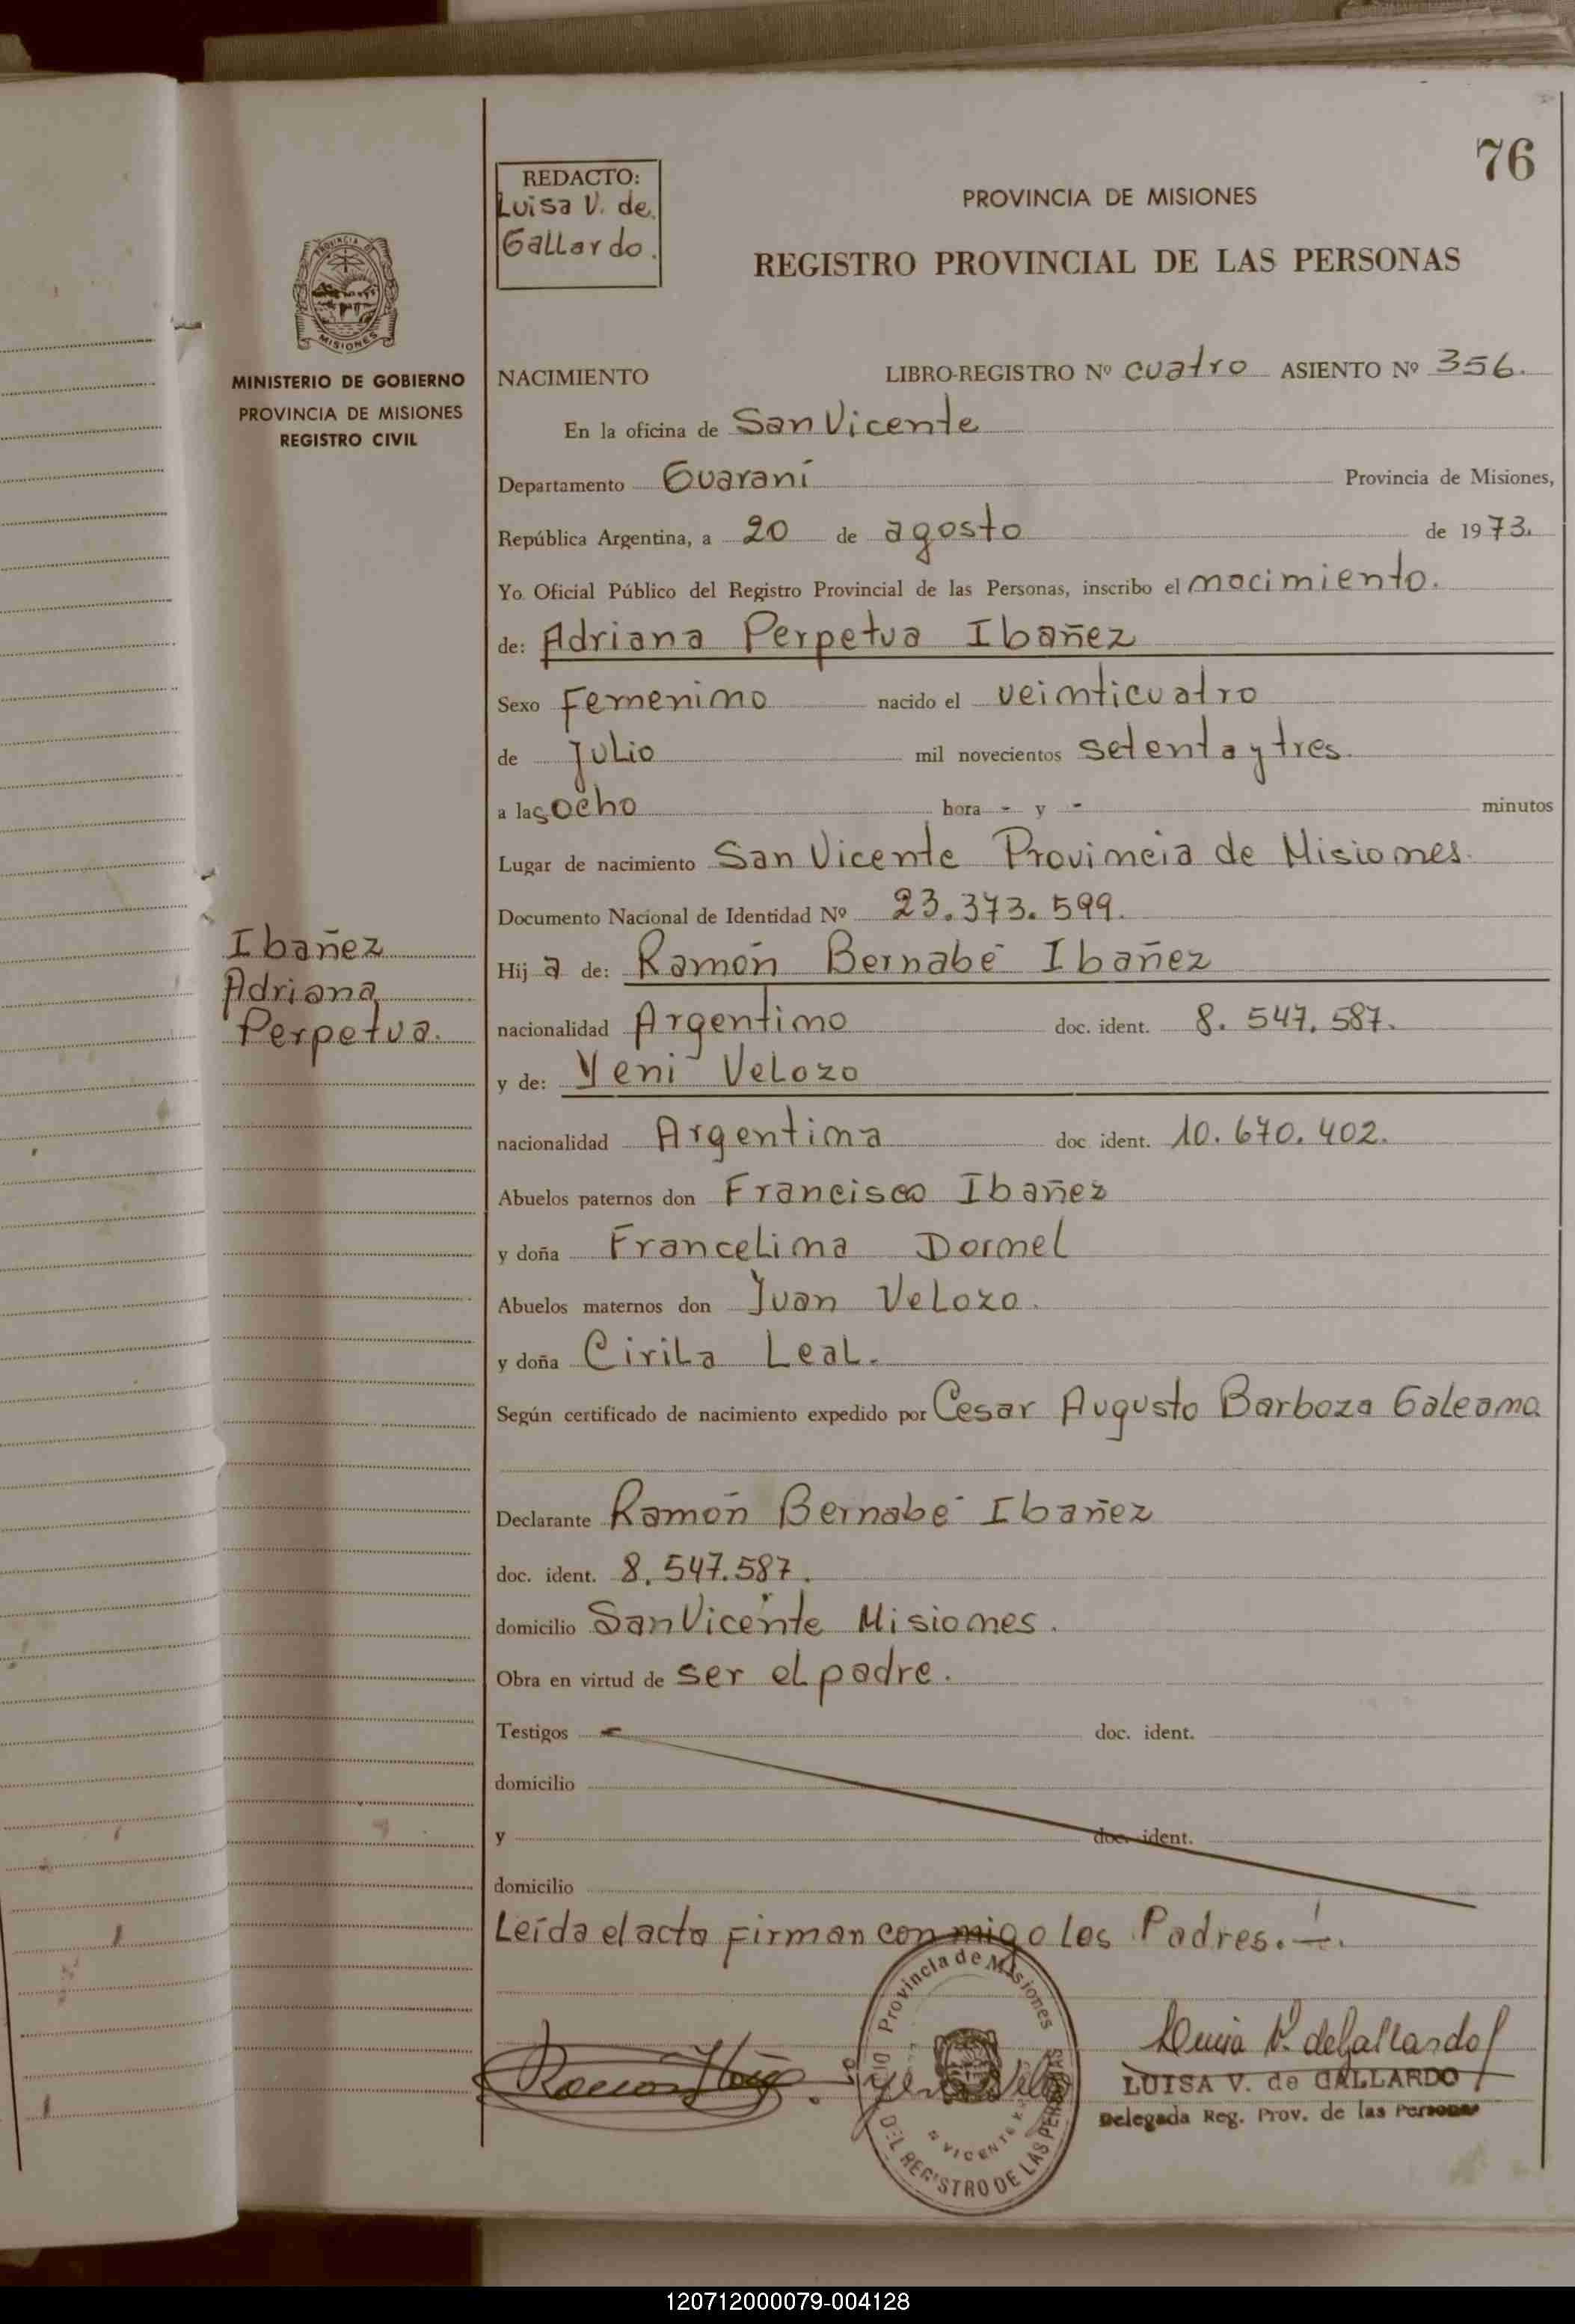 76
REDACTO:
Luisa V. de
Gallardo.
PROVINCIA DE MISIONES
REGISTRO PROVINCIAL DE LAS PERSONAS
PROVINCIA DE
MISIONES
MINISTERIO DE GOBIERNO
PROVINCIA DE MISIONES
REGISTRO CIVIL
NACIMIENTO LIBRO-REGISTRO Nº cuatro ASIENTO Nº 356.
En la oficina de San Vicente
Departamento Guaraní Provincia de Misiones,
República Argentina, a 20 de agosto de 1973.
Yo Oficial Público del Registro Provincial de las Personas, inscribo el nacimiento.
de: Adriana Perpetua Ibañez
Sexo Femenino nacido el veinticuatro
de Julio mil novecientos setenta y tres.
a las ocho hora - y - minutos
Lugar de nacimiento San Vicente Provincia de Misiones.
Documento Nacional de Identidad Nº 23.373.599.
Ibañez
Adriana
Perpetua.
Hij a de: Ramón Bernabé Ibañez
nacionalidad Argentino doc. ident. 8.547.587.
y de: Yeni Velozo
nacionalidad Argentina doc. ident. 10.670.402.
Abuelos paternos don Francisco Ibañez
y doña Francelina Dornel
Abuelos maternos don Juan Velozo.
y doña Cirila Leal.
Según certificado de nacimiento expedido por Cesar Augusto Barboza Galeana
Declarante Ramón Bernabé Ibañez
doc. ident. 8.547.587.
domicilio San Vicente Misiones.
Obra en virtud de ser el padre.
Testigos doc. ident.
domicilio
y doc. ident.
domicilio
Leída el acta firman conmigo los Padres.-.
Provincia de Misiones
DEL REGISTRO DE LAS PERSONAS
Luisa V. de Gallardo
LUISA V. de GALLARDO
Delegada Reg. Prov. de las Personas
120712000079-004128